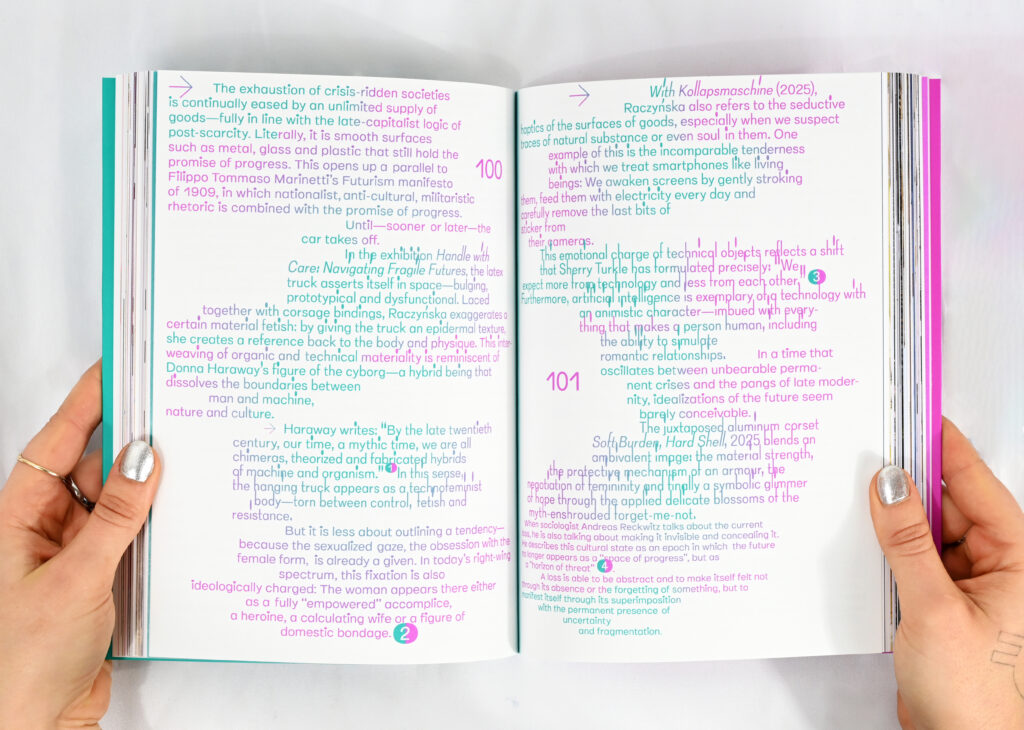 → The exhaustion of crisis-ridden societies
is continually eased by an unlimited supply of
goods—fully in line with the late-capitalist logic of
post-scarcity. Literally, it is smooth surfaces
such as metal, glass and plastic that still hold the
promise of progress. This opens up a parallel to
Filippo Tommaso Marinetti's Futurism manifesto
of 1909, in which nationalist, anti-cultural, militaristic
rhetoric is combined with the promise of progress.
100
Until—sooner or later—the
car takes off.
In the exhibition Handle with
Care: Navigating Fragile Futures, the latex
truck asserts itself in space—bulging,
prototypical and dysfunctional. Laced
together with corsage bindings, Raczyńska exaggerates a
certain material fetish: by giving the truck an epidermal texture,
she creates a reference back to the body and physique. This inter-
weaving of organic and technical materiality is reminiscent of
Donna Haraway's figure of the cyborg—a hybrid being that
dissolves the boundaries between
man and machine,
nature and culture.
→ Haraway writes: "By the late twentieth
century, our time, a mythic time, we are all
chimeras, theorized and fabricated hybrids
of machine and organism." 1 In this sense,
the hanging truck appears as a technofeminist
body—torn between control, fetish and
resistance.
But it is less about outlining a tendency—
because the sexualized gaze, the obsession with the
female form, is already a given. In today's right-wing
spectrum, this fixation is also
ideologically charged: The woman appears there either
as a fully "empowered" accomplice,
a heroine, a calculating wife or a figure of
domestic bondage. 2
→ With Kollapsmaschine (2025),
Raczyńska also refers to the seductive
haptics of the surfaces of goods, especially when we suspect
traces of natural substance or even soul in them. One
example of this is the incomparable tenderness
with which we treat smartphones like living
beings: We awaken screens by gently stroking
them, feed them with electricity every day and
carefully remove the last bits of
sticker from
their cameras.
This emotional charge of technical objects reflects a shift
that Sherry Turkle has formulated precisely: "We
expect more from technology and less from each other." 3
Furthermore, artificial intelligence is exemplary of a technology with
an animistic character—imbued with every-
thing that makes a person human, including
the ability to simulate
romantic relationships.
In a time that
oscillates between unbearable perma-
nent crises and the pangs of late moder-
nity, idealizations of the future seem
barely conceivable.
101
The juxtaposed aluminum corset
Soft Burden, Hard Shell, 2025 blends an
ambivalent image: the material strength,
the protective mechanism of an armour, the
negotiation of femininity and finally a symbolic glimmer
of hope through the applied delicate blossoms of the
myth-enshrouded forget-me-not.
When sociologist Andreas Reckwitz talks about the current
loss, he is also talking about making it invisible and concealing it.
He describes this cultural state as an epoch in which the future
no longer appears as a "space of progress", but as
a "horizon of threat" 4
A loss is able to be abstract and to make itself felt not
through its absence or the forgetting of something, but to
manifest itself through its superimposition
with the permanent presence of
uncertainty
and fragmentation.